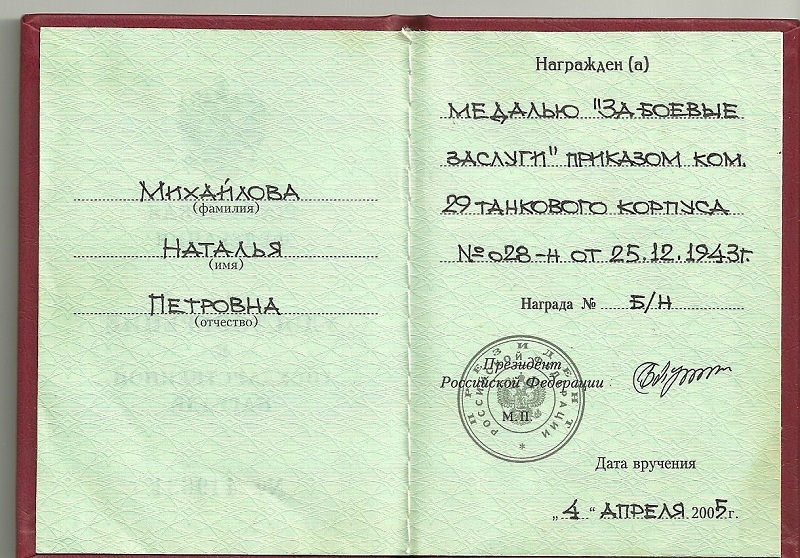 МИХАЙЛОВА
(фамилия)
НАТАЛЬЯ
(имя)
ПЕТРОВНА
(отчество)
Награжден (а)
МЕДАЛЬЮ "ЗА БОЕВЫЕ
ЗАСЛУГИ" ПРИКАЗОМ КОМ.
29 ТАНКОВОГО КОРПУСА
№ 028-Н ОТ 25.12.1943г.
Награда № Б/Н
ПРЕЗИДЕНТ
РОССИЙСКОЙ ФЕДЕРАЦИИ
Президент
Российской Федерации
М.П.
Дата вручения
„4“ АПРЕЛЯ 2005г.